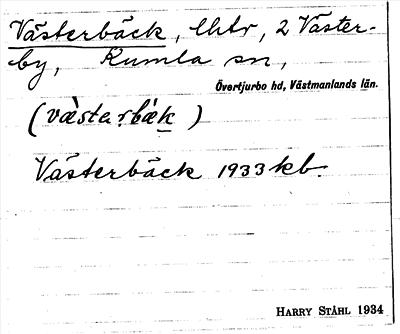 Västerbäck, lhtr, 2 Väster-
by, Kumla sn,
Övertjurbo hd, Västmanlands län.
(væ̀starbæk)
Västerbäck 1933 kb.
HARRY STÅHL 1934